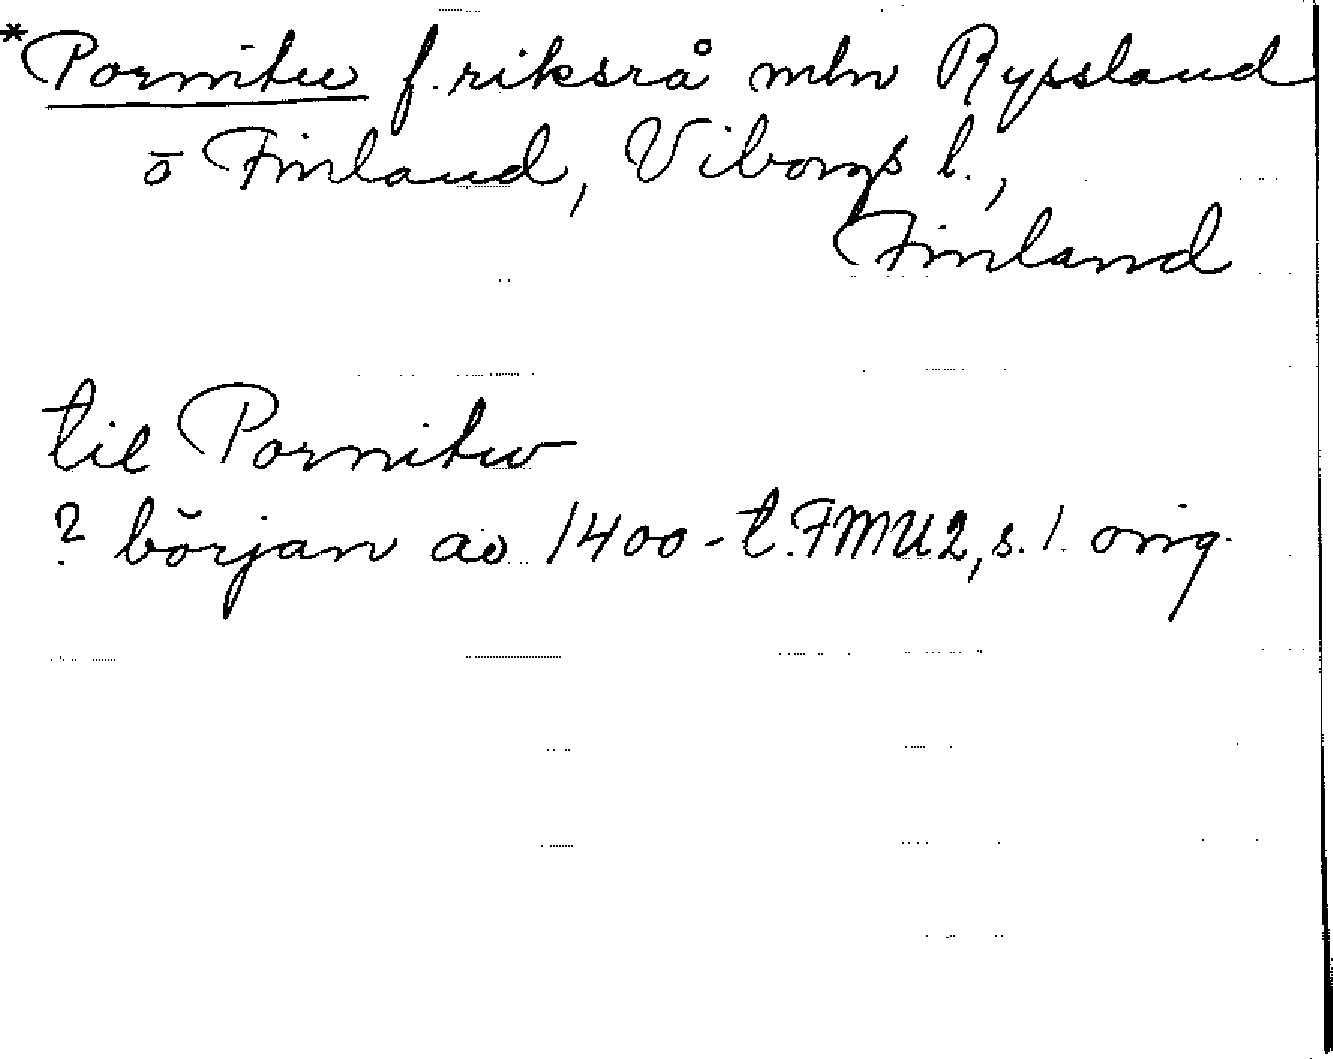 *Pornitu f. riksrå mln Ryssland
o Finland, Viborgs l.,
Finland
til Pornitu
? början av 1400-t. FMU 2, s. 1. orig.